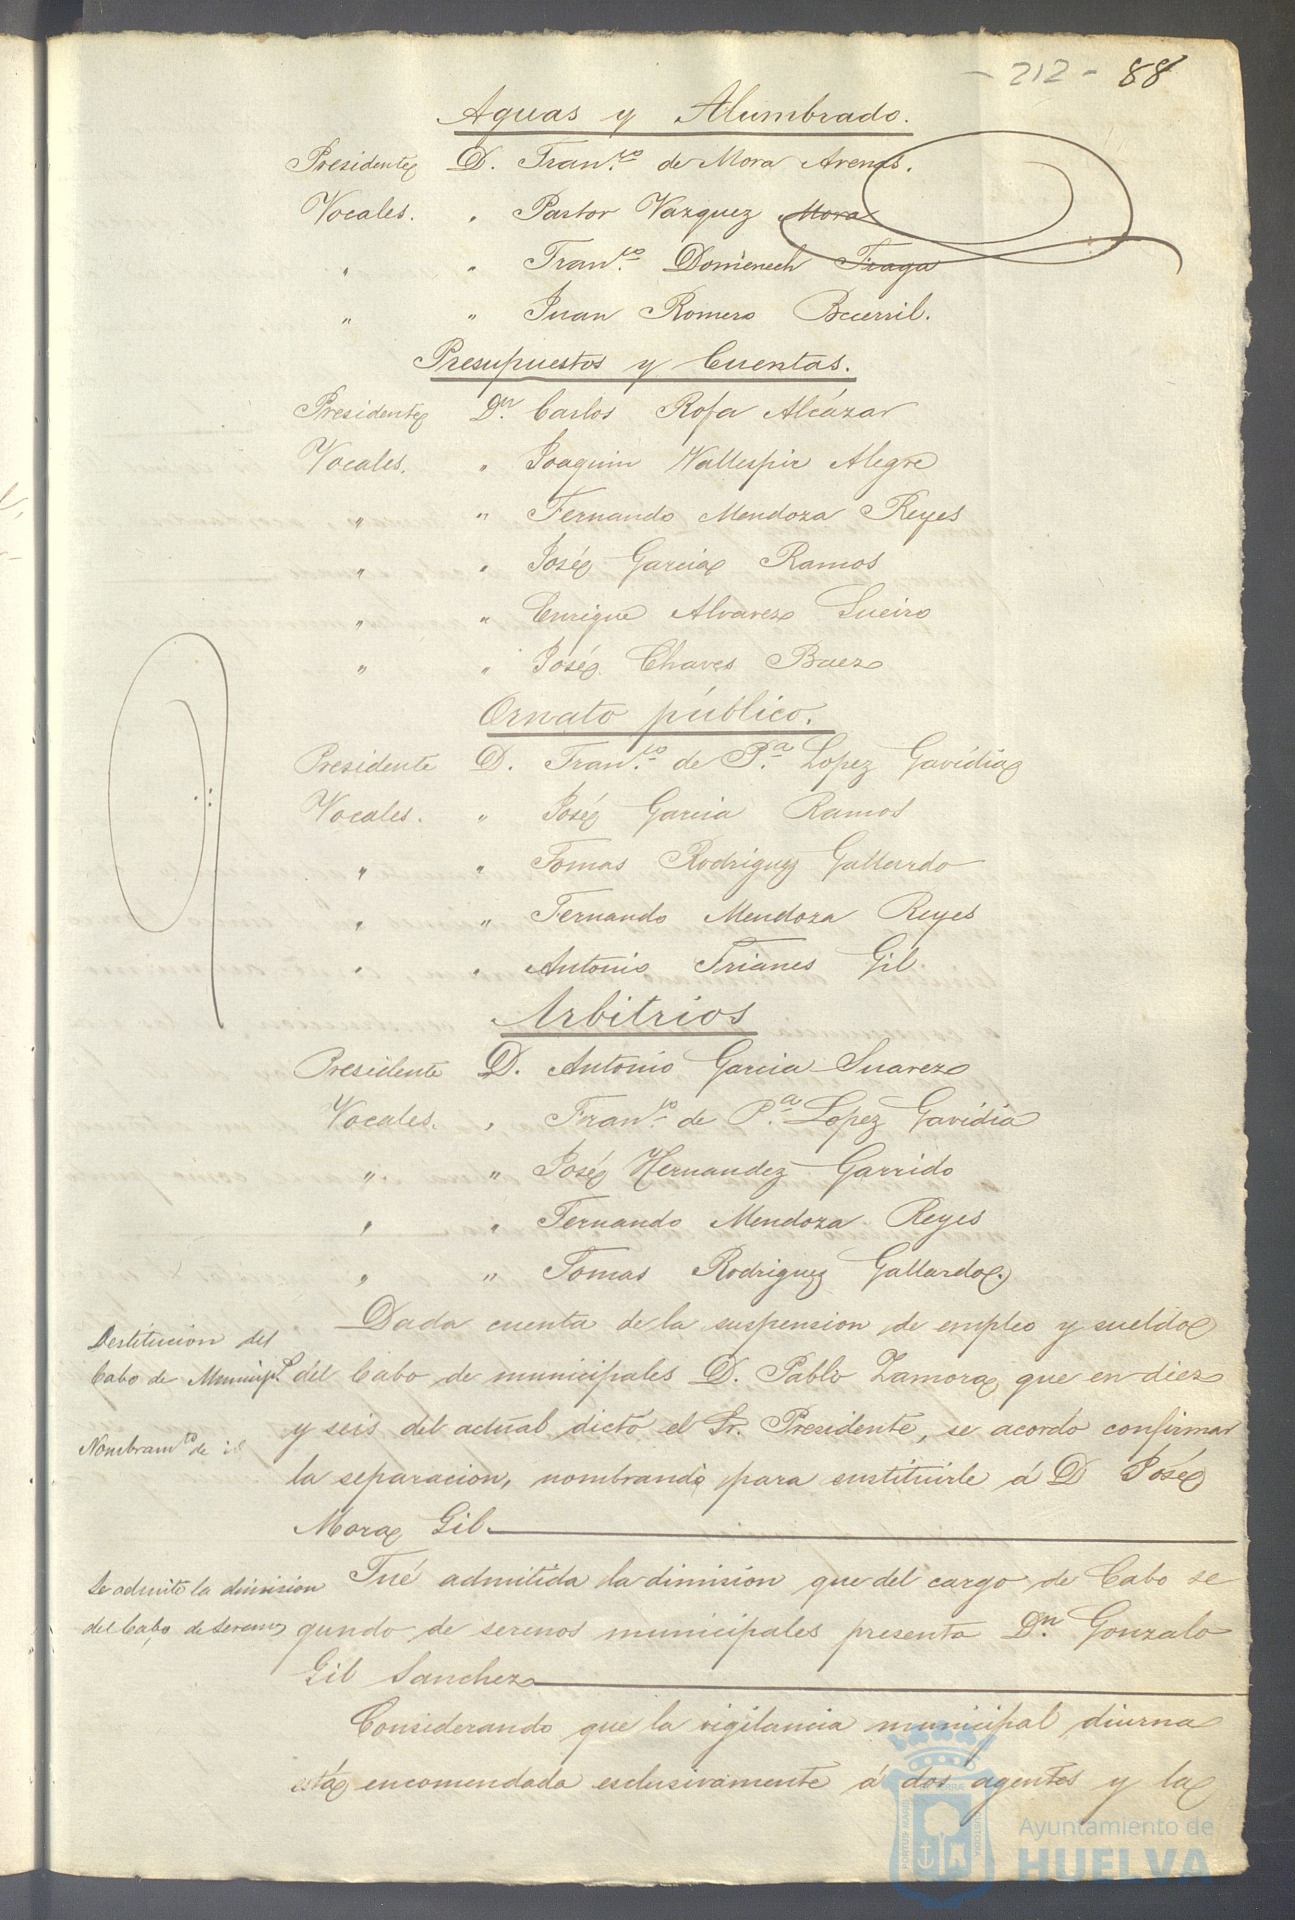 - 212 - 88
Aguas y Alumbrado.
Presidente D. Fran.co de Mora Arenas.
Vocales. " Pastor Vazquez Mora
" " Fran.co Doménech Fraga
" " Juan Romero Becerril.
Presupuestos y Cuentas.
Presidente Dn. Carlos Rofa Alcázar
Vocales. " Joaquin Vallespir Alegre
" " Fernando Mendoza Reyes
" " José Garcia Ramos
" " Enrique Alvarez Sueiro
" " José Chaves Baez
Ornato público.
Presidente D. Fran.co de P.a Lopez Gavidia
Vocales. " José Garcia Ramos
" " Tomas Rodriguez Gallardo
" " Fernando Mendoza Reyes
" " Antonio Trianes Gil
Arbitrios
Presidente D. Antonio Garcia Suarez
Vocales. " Fran.co de P.a Lopez Gavidia
" " José Hernandez Garrido
" " Fernando Mendoza Reyes
" " Tomas Rodriguez Gallardo.
Dada cuenta de la suspension de empleo y sueldo
Destitucion del
Cabo de Municip.l del Cabo de municipales D. Pablo Zamora que en diez
y seis del actual dictó el Sr. Presidente, se acordo confirmar
Nombram.to de id
la separacion, nombrando para sustituirle á D José
Mora Gil
Se admite la dimision Fué admitida la dimision que del cargo de Cabo se
del Cabo de Serenos gundo de serenos municipales presenta Dn. Gonzalo
Gil Sanchez
Considerando que la vigilancia municipal diurna
está encomendada esclusivamente á dos agentes y la
Ayuntamiento de
HUELVA